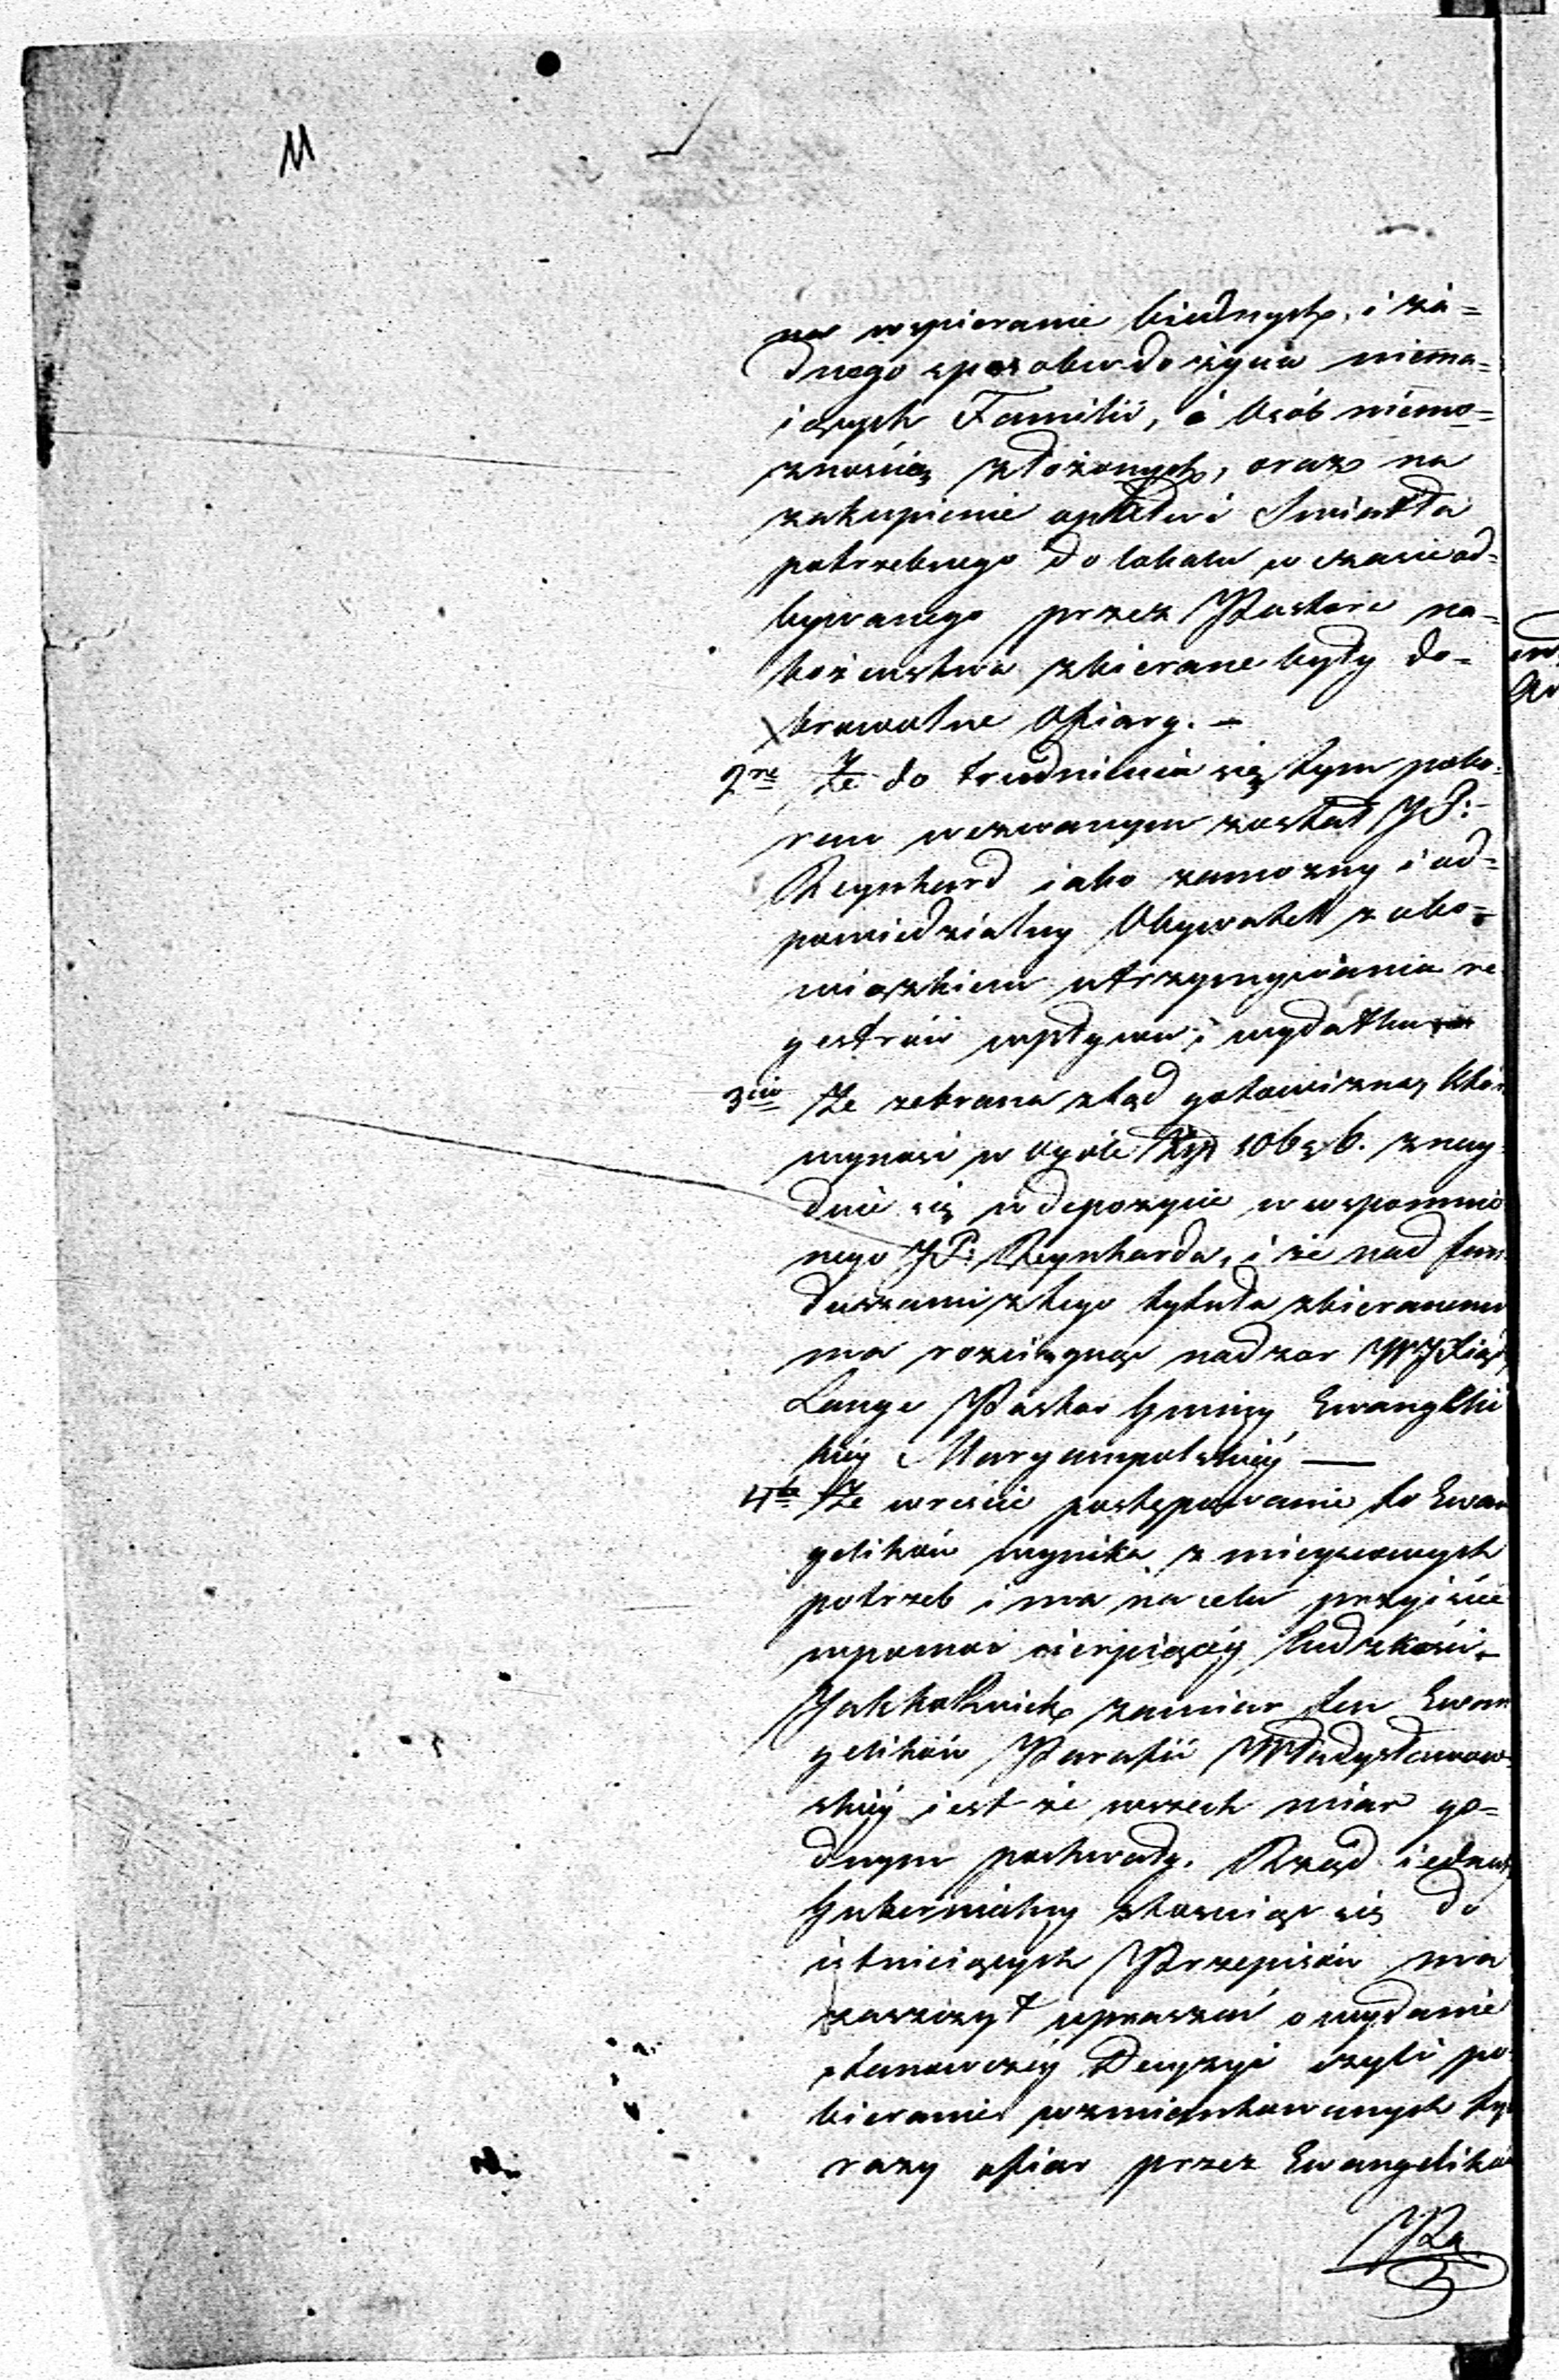 11
na wspieranie biednych, i ża=
dnego sposobu do życia niema=
iących Familii, i Osób niemo=
znością złożonych, oraz na
zakupienie opału i Swiatła
potrzebnego do lokalu w czasie od=
bywanego przez Pastora na=
bożeństwa zbierane były do=
browolne Ofiary. –
2re Że do trudnienia się tym pobo=
rem wezwanym został JP:
Reynhard iako zamożny i od=
powiedzialny Obywatel z obo=
wiązkiem utrzymywania re
gestrów wpływu i wydatku
3cio Że zebrana ztąd gotowizna, któ
wynosi w ogóle Złp 106 g 6. znay
duie się w depozycie wwspomnio
nego JP: Reynharda, i że nad fun
duszami z tego tytułu zbieranemi
ma rozciągnąć nadzór WJXiąd
Lange Pastor Gminy Ewangeli
kiéy Maryampolskiéy —
4to Że wreście postępowanie to Ewan
gelików wynika z mieyscowych
potrzeb i ma na celu przyiście
wpomoc cierpiącéy ludzkości. –
Jakkolwiek zamiar ten Ewan
gelików Parafii Władysławow
skiéy iest ze wszech miar go=
dnym pochwały. Rząd iednak
Gubernialny stosuiąc się do
istnieiących Przepisów ma
zaszczyt upraszać o wydanie
stanowczéy Decyzyi czyli po
bieranie wzmiankowanych ty
razy ofiar przez Ewangelików